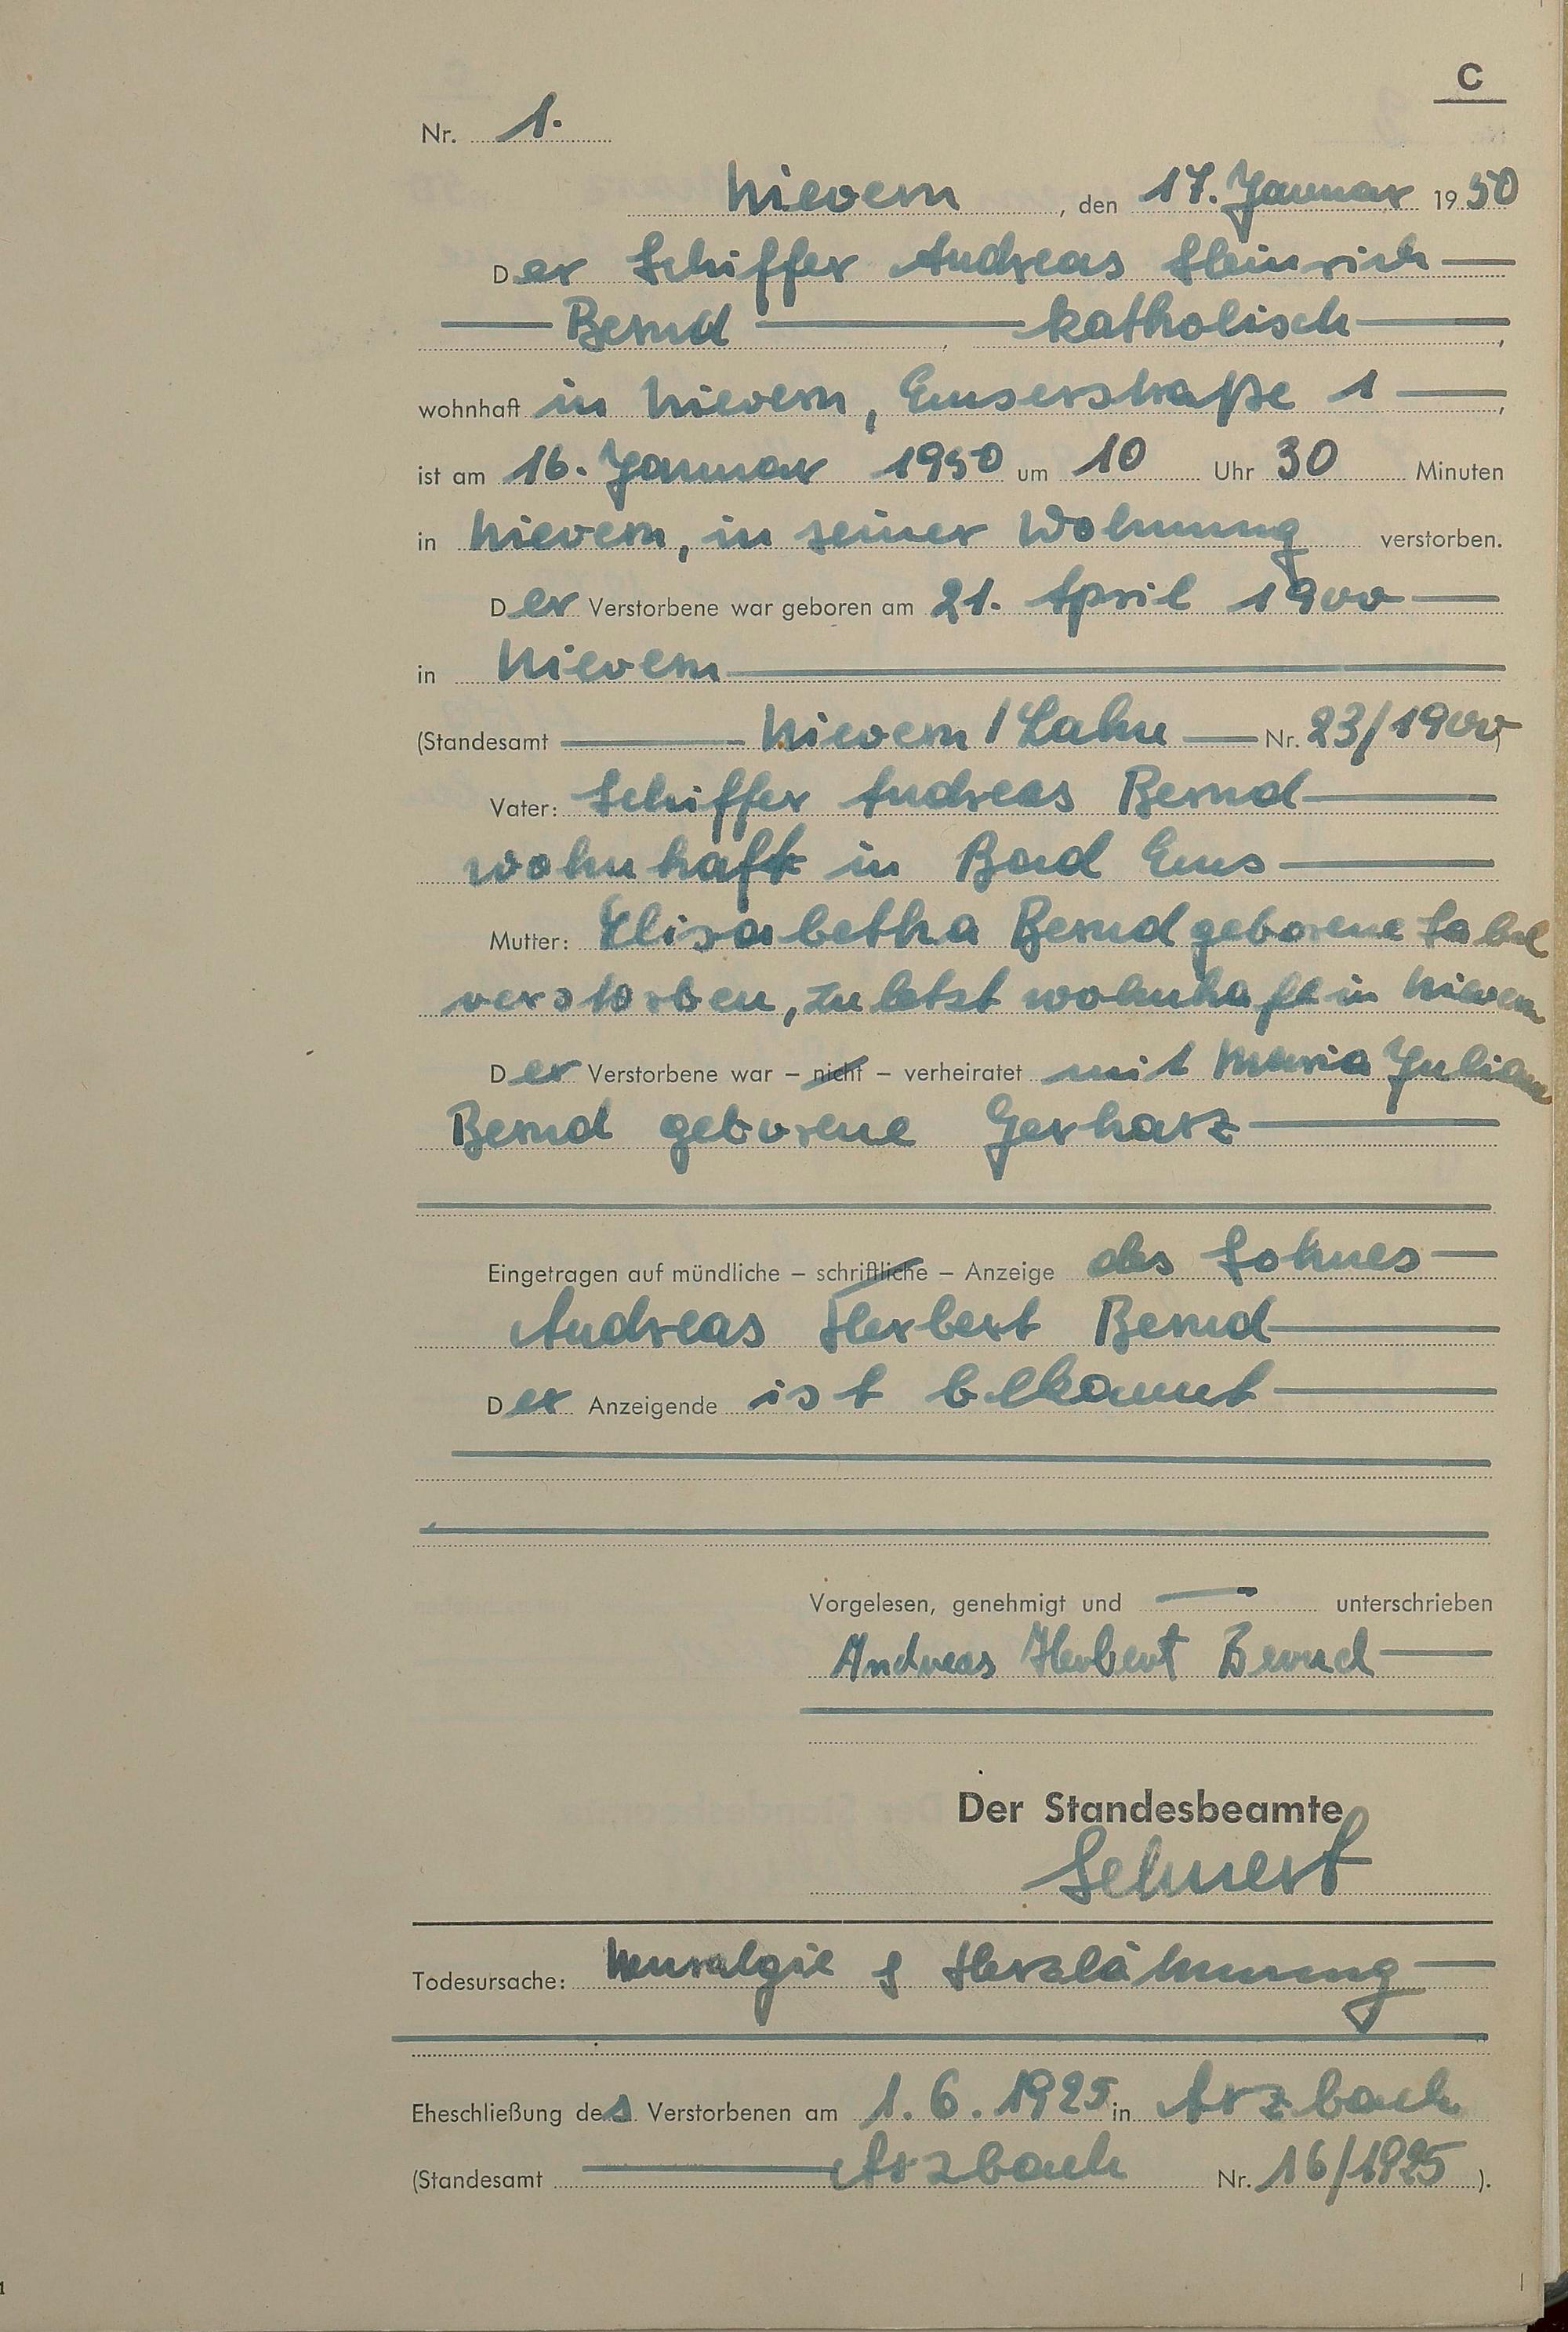 C
Nr. 1.
Nievern, den 17. Januar 1950
Der Schiffer Andreas Heinrich
Bernd, katholisch,
wohnhaft in Nievern, Emserstraße 1,
ist am 16. Januar 1950 um 10 Uhr 30 Minuten
in Nievern, in seiner Wohnung verstorben.
Der Verstorbene war geboren am 21. April 1900
in Nievern
(Standesamt Nievern / Lahn Nr. 23/1900)
Vater: Schiffer Andreas Bernd
wohnhaft in Bad Ems
Mutter: Elisabetha Bernd geborene Sabel
verstorben, zuletzt wohnhaft in Nievern
Der Verstorbene war – nicht – verheiratet mit Maria Juliana
Bernd geborene Gerharz
Eingetragen auf mündliche – schriftliche – Anzeige des Sohnes
Andreas Herbert Bernd
Der Anzeigende ist bekannt
Vorgelesen, genehmigt und — unterschrieben
Andreas Herbert Bernd
Der Standesbeamte
Lehnert
Todesursache: Neuralgie & Herzlähmung
Eheschließung des Verstorbenen am 1.6.1925 in Arzbach
(Standesamt Arzbach Nr. 16/1925).